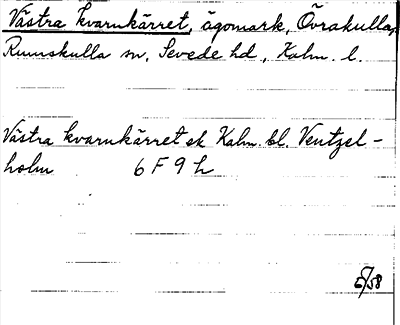 Västra kvarnkärret, ägomark, Övrakulla,
Rumskulla sn, Sevede hd, Kalm. l.
Västra kvarnkärret ek Kalm. bl. Ventzel-
holm 6 F 9 h
5/58